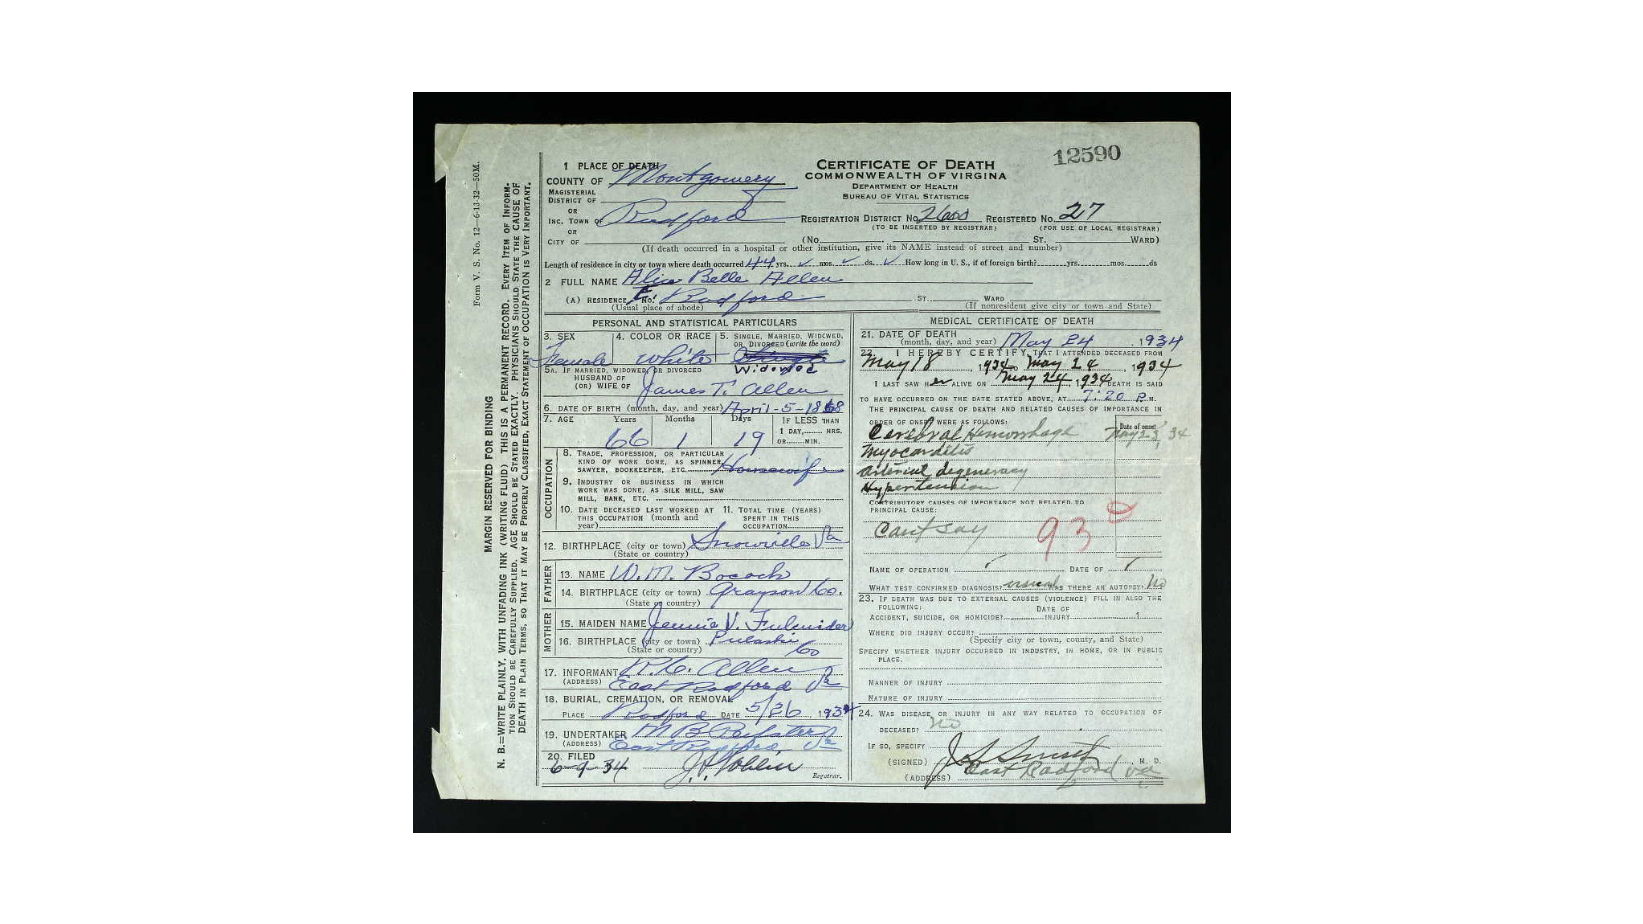 12590
Form V. S. No. 12—6-13-32—50M.
MARGIN RESERVED FOR BINDING
N. B.—WRITE PLAINLY, WITH UNFADING INK (WRITING FLUID) THIS IS A PERMANENT RECORD. EVERY ITEM OF INFORMATION SHOULD BE CAREFULLY SUPPLIED. AGE SHOULD BE STATED EXACTLY. PHYSICIANS SHOULD STATE THE CAUSE OF DEATH IN PLAIN TERMS, SO THAT IT MAY BE PROPERLY CLASSIFIED. EXACT STATEMENT OF OCCUPATION IS VERY IMPORTANT.
1 PLACE OF DEATH
COUNTY OF Montgomery
MAGISTERIAL DISTRICT OF
OR
INC. TOWN OF Radford
OR
CITY OF
CERTIFICATE OF DEATH
COMMONWEALTH OF VIRGINIA
DEPARTMENT OF HEALTH
BUREAU OF VITAL STATISTICS
REGISTRATION DISTRICT No. 2600 REGISTERED No. 27
(TO BE INSERTED BY REGISTRAR) (FOR USE OF LOCAL REGISTRAR)
(No. ST. WARD)
(If death occurred in a hospital or other institution, give its NAME instead of street and number)
Length of residence in city or town where death occurred 44 yrs. mos. ds. How long in U. S., if of foreign birth? yrs. mos. ds
2 FULL NAME Alice Belle Allen
(A) RESIDENCE. No. E. Radford ST. WARD
(Usual place of abode) (If nonresident give city or town and State)
PERSONAL AND STATISTICAL PARTICULARS
3. SEX Female
4. COLOR OR RACE White
5. SINGLE, MARRIED, WIDOWED, OR DIVORCED (write the word)
Widowed
5A. IF MARRIED, WIDOWED, OR DIVORCED
HUSBAND OF
(OR) WIFE OF James T. Allen
6. DATE OF BIRTH (month, day, and year) April-5-1868
7. AGE Years 66 Months 1 Days 19 IF LESS THAN 1 DAY, HRS. OR MIN.
OCCUPATION
8. TRADE, PROFESSION, OR PARTICULAR KIND OF WORK DONE, AS SPINNER, SAWYER, BOOKKEEPER, ETC. Housewife
9. INDUSTRY OR BUSINESS IN WHICH WORK WAS DONE, AS SILK MILL, SAW MILL, BANK, ETC.
10. DATE DECEASED LAST WORKED AT THIS OCCUPATION (month and year)
11. TOTAL TIME (YEARS) SPENT IN THIS OCCUPATION
12. BIRTHPLACE (city or town) Snowville Va
(State or country)
FATHER
13. NAME W. M. Bocock
14. BIRTHPLACE (city or town) Grayson Co.
(State or country)
MOTHER
15. MAIDEN NAME Jennie V. Fulwider
16. BIRTHPLACE (city or town) Pulaski Co
(State or country)
17. INFORMANT R. C. Allen
(ADDRESS) East Radford Va
18. BURIAL, CREMATION, OR REMOVAL
PLACE Radford DATE 5/26 1934
19. UNDERTAKER M B
(ADDRESS) East Radford, Va
20. FILED
6-9-34
Registrar.
MEDICAL CERTIFICATE OF DEATH
21. DATE OF DEATH
(month, day, and year) May 24, 1934
22. I HEREBY CERTIFY, THAT I ATTENDED DECEASED FROM
May 18, 1934 to May 24, 1934
I LAST SAW HER ALIVE ON May 24, 1934, DEATH IS SAID
TO HAVE OCCURRED ON THE DATE STATED ABOVE, AT 7:20 P.M.
THE PRINCIPAL CAUSE OF DEATH AND RELATED CAUSES OF IMPORTANCE IN
ORDER OF ONSET WERE AS FOLLOWS:
Date of onset
Cerebral Hemorrhage May 23 '34
Myocarditis
Arterial degeneracy
Hypertension
CONTRIBUTORY CAUSES OF IMPORTANCE NOT RELATED TO
PRINCIPAL CAUSE:
Cant say
93
NAME OF OPERATION DATE OF
WHAT TEST CONFIRMED DIAGNOSIS? visual WAS THERE AN AUTOPSY? No
23. IF DEATH WAS DUE TO EXTERNAL CAUSES (VIOLENCE) FILL IN ALSO THE
FOLLOWING:
ACCIDENT, SUICIDE, OR HOMICIDE? DATE OF INJURY 1
WHERE DID INJURY OCCUR?
(Specify city or town, county, and State)
SPECIFY WHETHER INJURY OCCURRED IN INDUSTRY, IN HOME, OR IN PUBLIC
PLACE.
MANNER OF INJURY
NATURE OF INJURY
24. WAS DISEASE OR INJURY IN ANY WAY RELATED TO OCCUPATION OF
DECEASED? No
IF SO, SPECIFY
(SIGNED) M. D.
(ADDRESS) East Radford Va